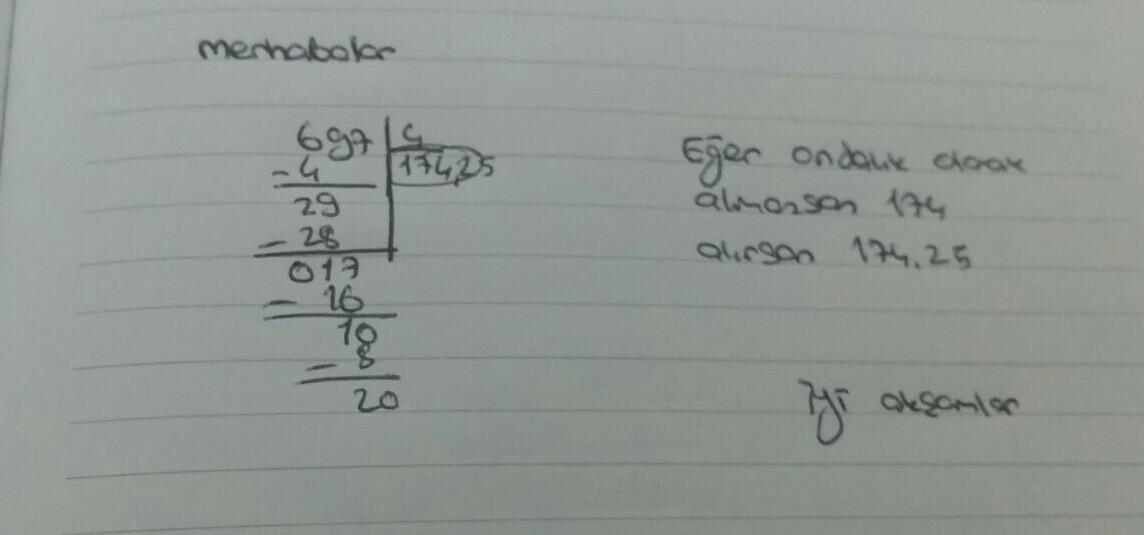 merhabalar
697 4
- 4 174,25
29
- 28
017
- 16
10
- 8
20
Eğer ondalık olarak
almazsan 174
alırsan 174.25
İyi akşamlar